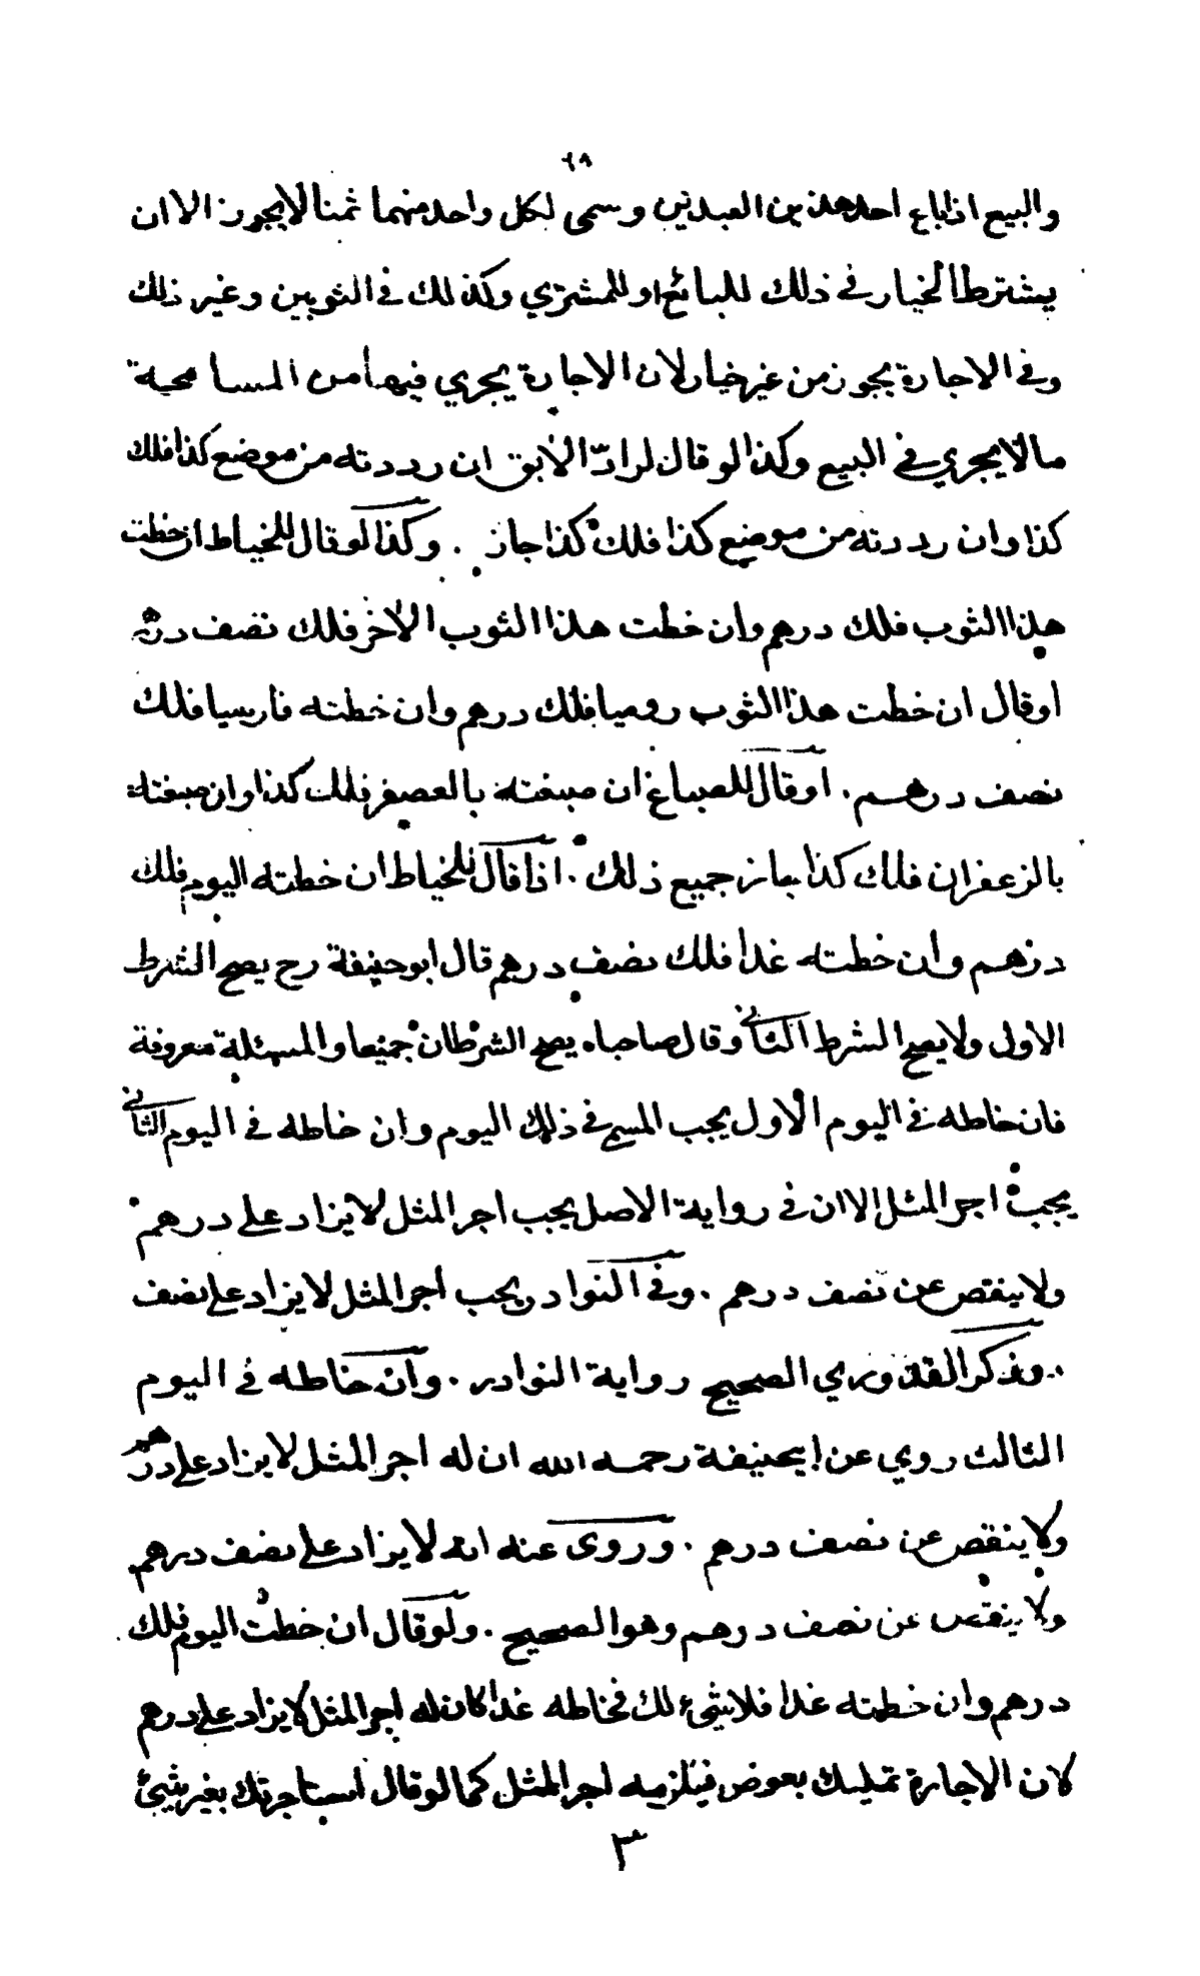 ٦٨
والبيع اذا باع احد هذين العبدين وسمى لكل واحد منهما ثمنا لا يجوز الا ان
يشترط الخيار في ذلك للبائع او للمشتري وكذلك في الثوبين وغير ذلك
وفي الاجارة يجوز من غير خيار لان الاجارة يجري فيها من المسامحة
ما لا يجري في البيع وكذا لو قال لرادّ الابق ان رددته من موضع كذا فلك
كذا وان رددته من موضع كذا فلك كذا جاز . وكذا لو قال للخياط ان خطت
هذا الثوب فلك درهم وان خطت هذا الثوب الاخر فلك نصف درهم
او قال ان خطت هذا الثوب روميا فلك درهم وان خطته فارسيا فلك
نصف درهم . او قال للصباغ ان صبغته بالعصفر فلك كذا وان صبغته
بالزعفران فلك كذا جاز جميع ذلك . اذا قال للخياط ان خطته اليوم فلك
درهم وان خطته غدا فلك نصف درهم قال ابو حنيفة رح يصح الشرط
الاولى ولا يصح الشرط الثاني وقال صاحباه يصح الشرطان جميعا والمسئلة معروفة
فان خاطه في اليوم الاول يجب المسمى في ذلك اليوم وان خاطه في اليوم الثاني
يجب اجر المثل الا ان في رواية الاصل يجب اجر المثل لا يزاد على درهم
ولا ينقص عن نصف درهم . وفي النوادر يجب اجر المثل لا يزاد على نصف
. وذكر القدوري الصحيح رواية النوادر . وان خاطه في اليوم
الثالث روي عن ابيحنيفة رحمه الله ان له اجر المثل لا يزاد على درهم
ولا ينقص عن نصف درهم . وروى عنه انه لا يزاد على نصف درهم
ولا ينقص عن نصف درهم وهو الصحيح . ولو قال ان خطت اليوم فلك
درهم وان خطته غدا فلا شيء لك فخاطه غدا كان له اجر المثل لا يزاد على درهم
لان الاجارة تمليك بعوض فيلزمه اجر المثل كما لو قال استاجرتك بغير شيئ
٣